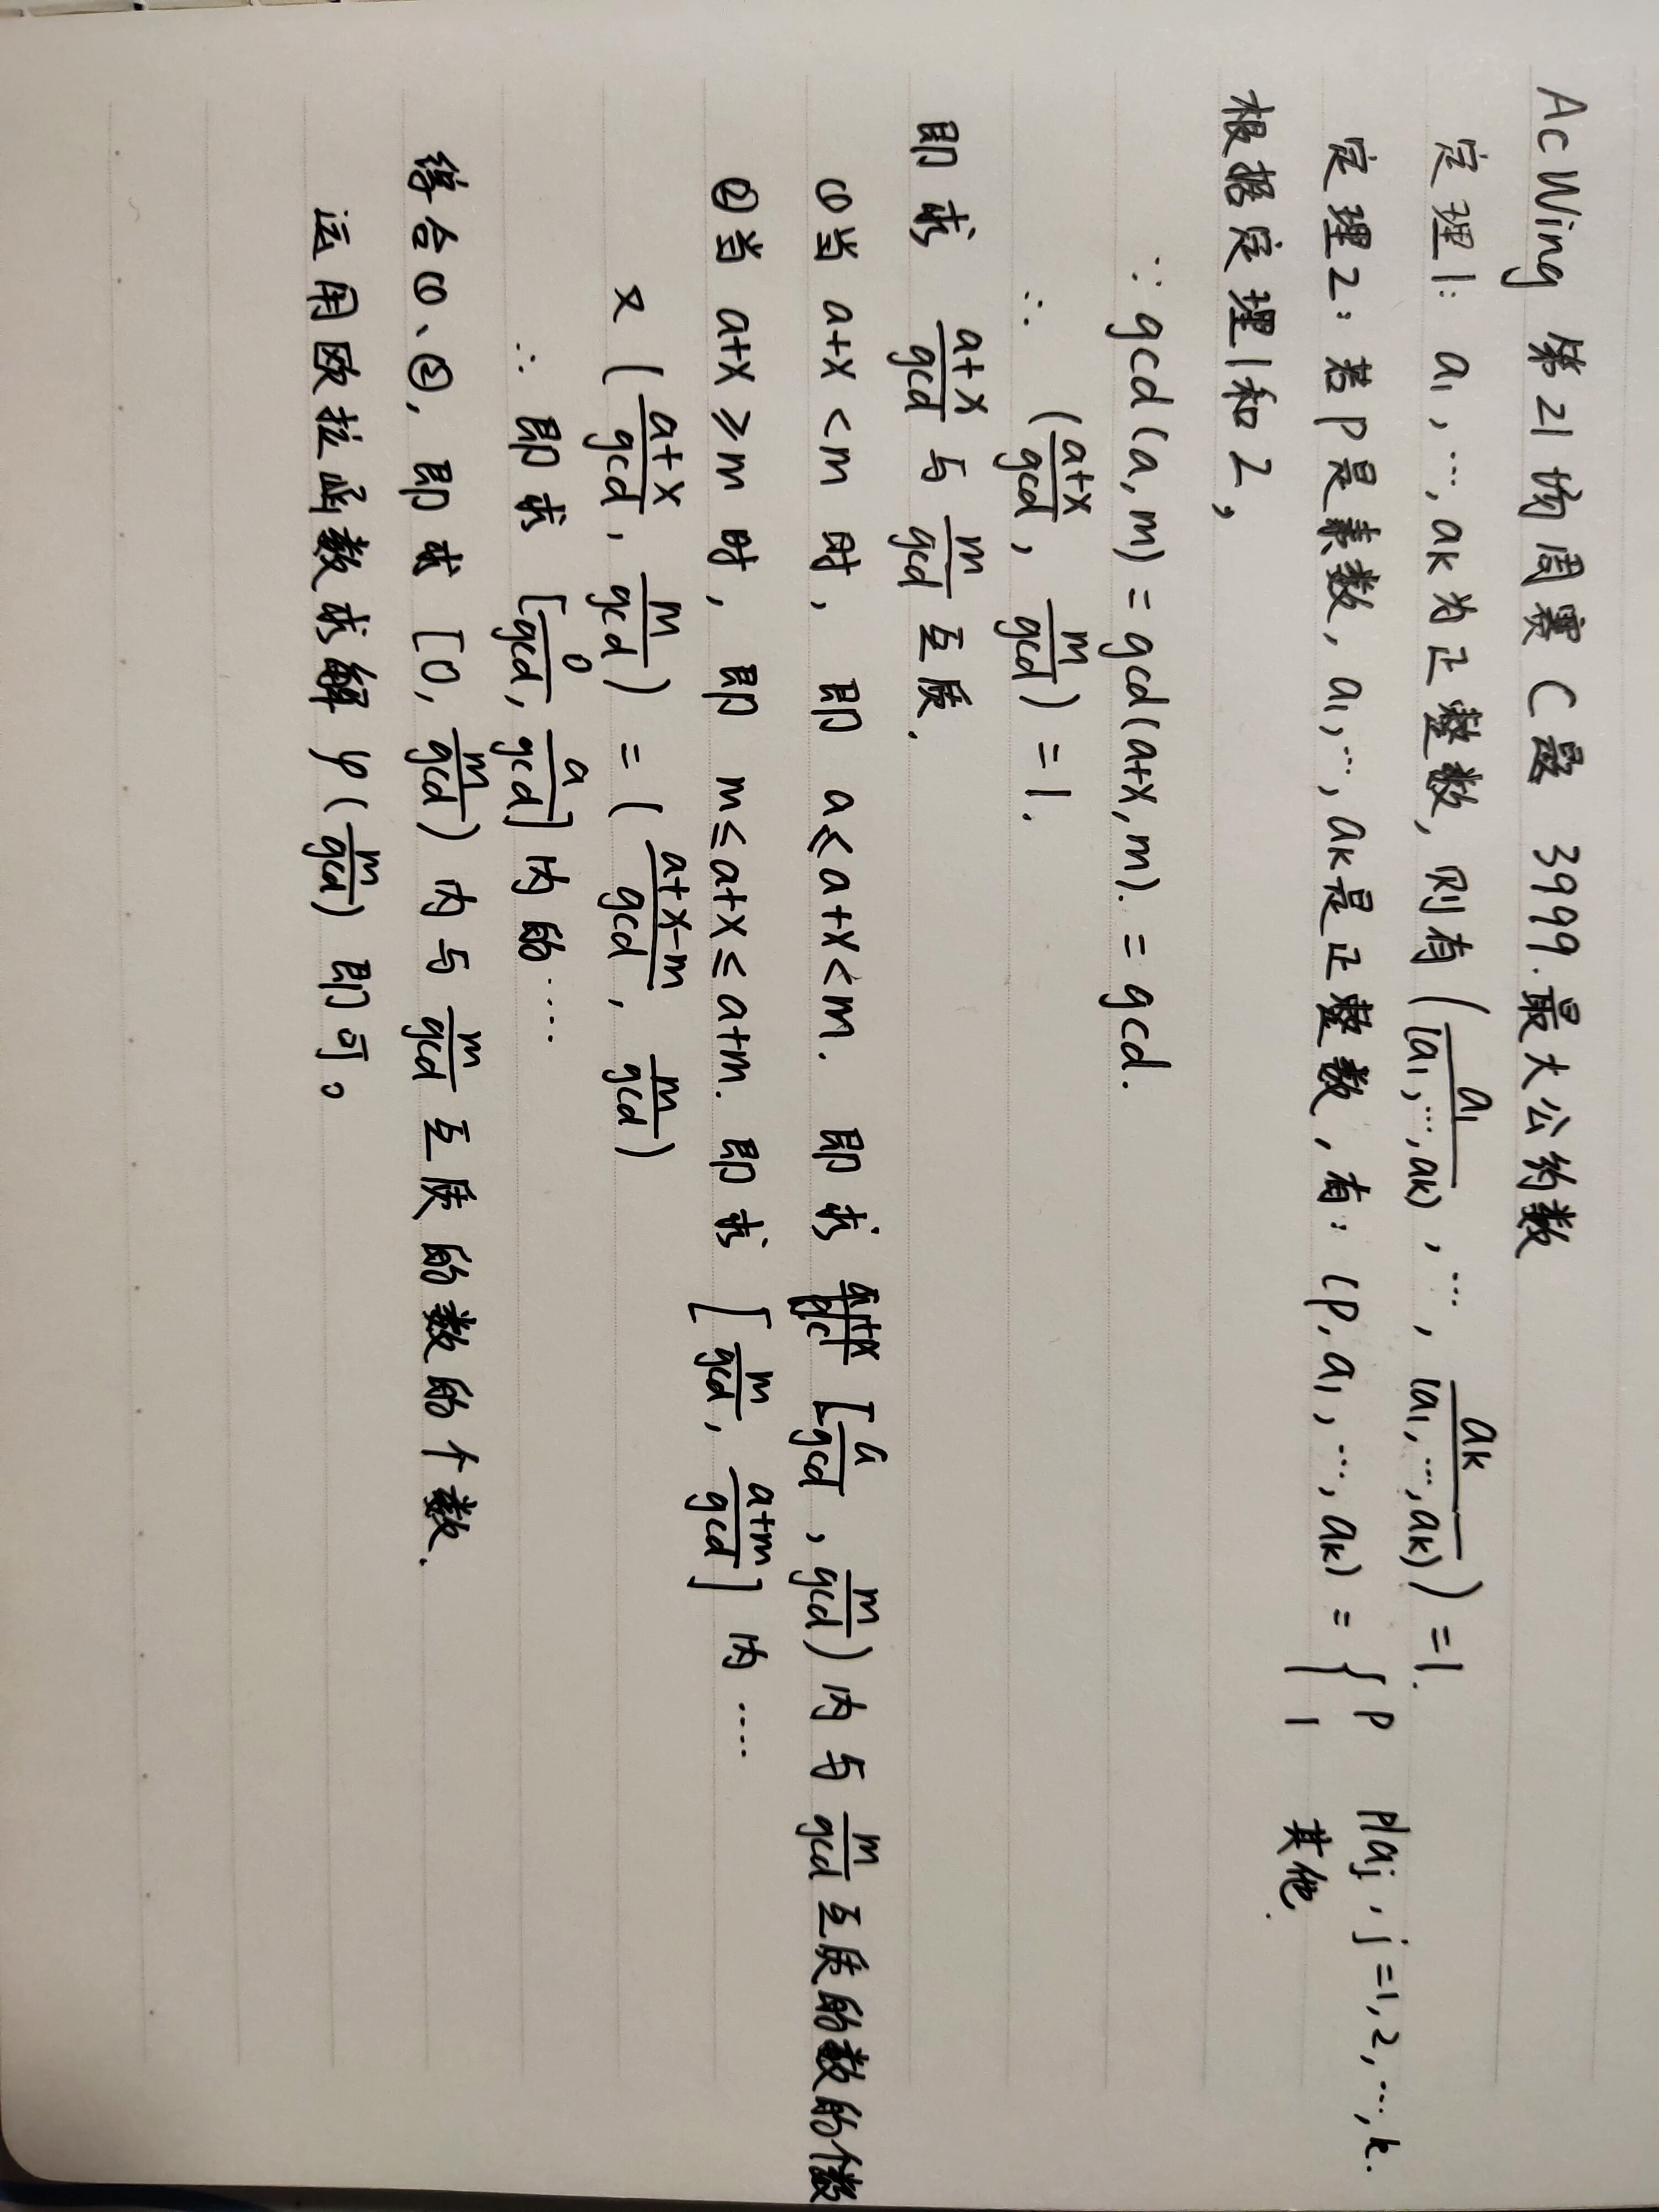 AcWing 第21场周赛 C题 3999.最大公约数
定理1: a₁,…,aₖ为正整数, 则有 (a₁/(a₁,…,aₖ), …, aₖ/(a₁,…,aₖ)) = 1.
定理2: 若p是素数, a₁,…,aₖ是正整数, 有: (p, a₁, …, aₖ) = { p p|aⱼ, j=1,2,…,k. 1 其他.
根据定理1和2,
∵ gcd(a,m) = gcd(a+x,m). = gcd.
∴ ((a+x)/gcd, m/gcd) = 1.
即求 (a+x)/gcd 与 m/gcd 互质.
①当 a+x<m 时, 即 a≤a+x<m. 即求 [a/gcd, m/gcd) 内与 m/gcd 互质的数的个数
②当 a+x≥m 时, 即 m≤a+x≤a+m. 即求 [m/gcd, (a+m)/gcd] 内 ····
又 ((a+x)/gcd, m/gcd) = ((a+x-m)/gcd, m/gcd)
∴ 即求 [0/gcd, a/gcd] 内的 ····
综合①、②, 即求 [0, m/gcd) 内与 m/gcd 互质的数的个数.
运用欧拉函数求解 φ(m/gcd) 即可。